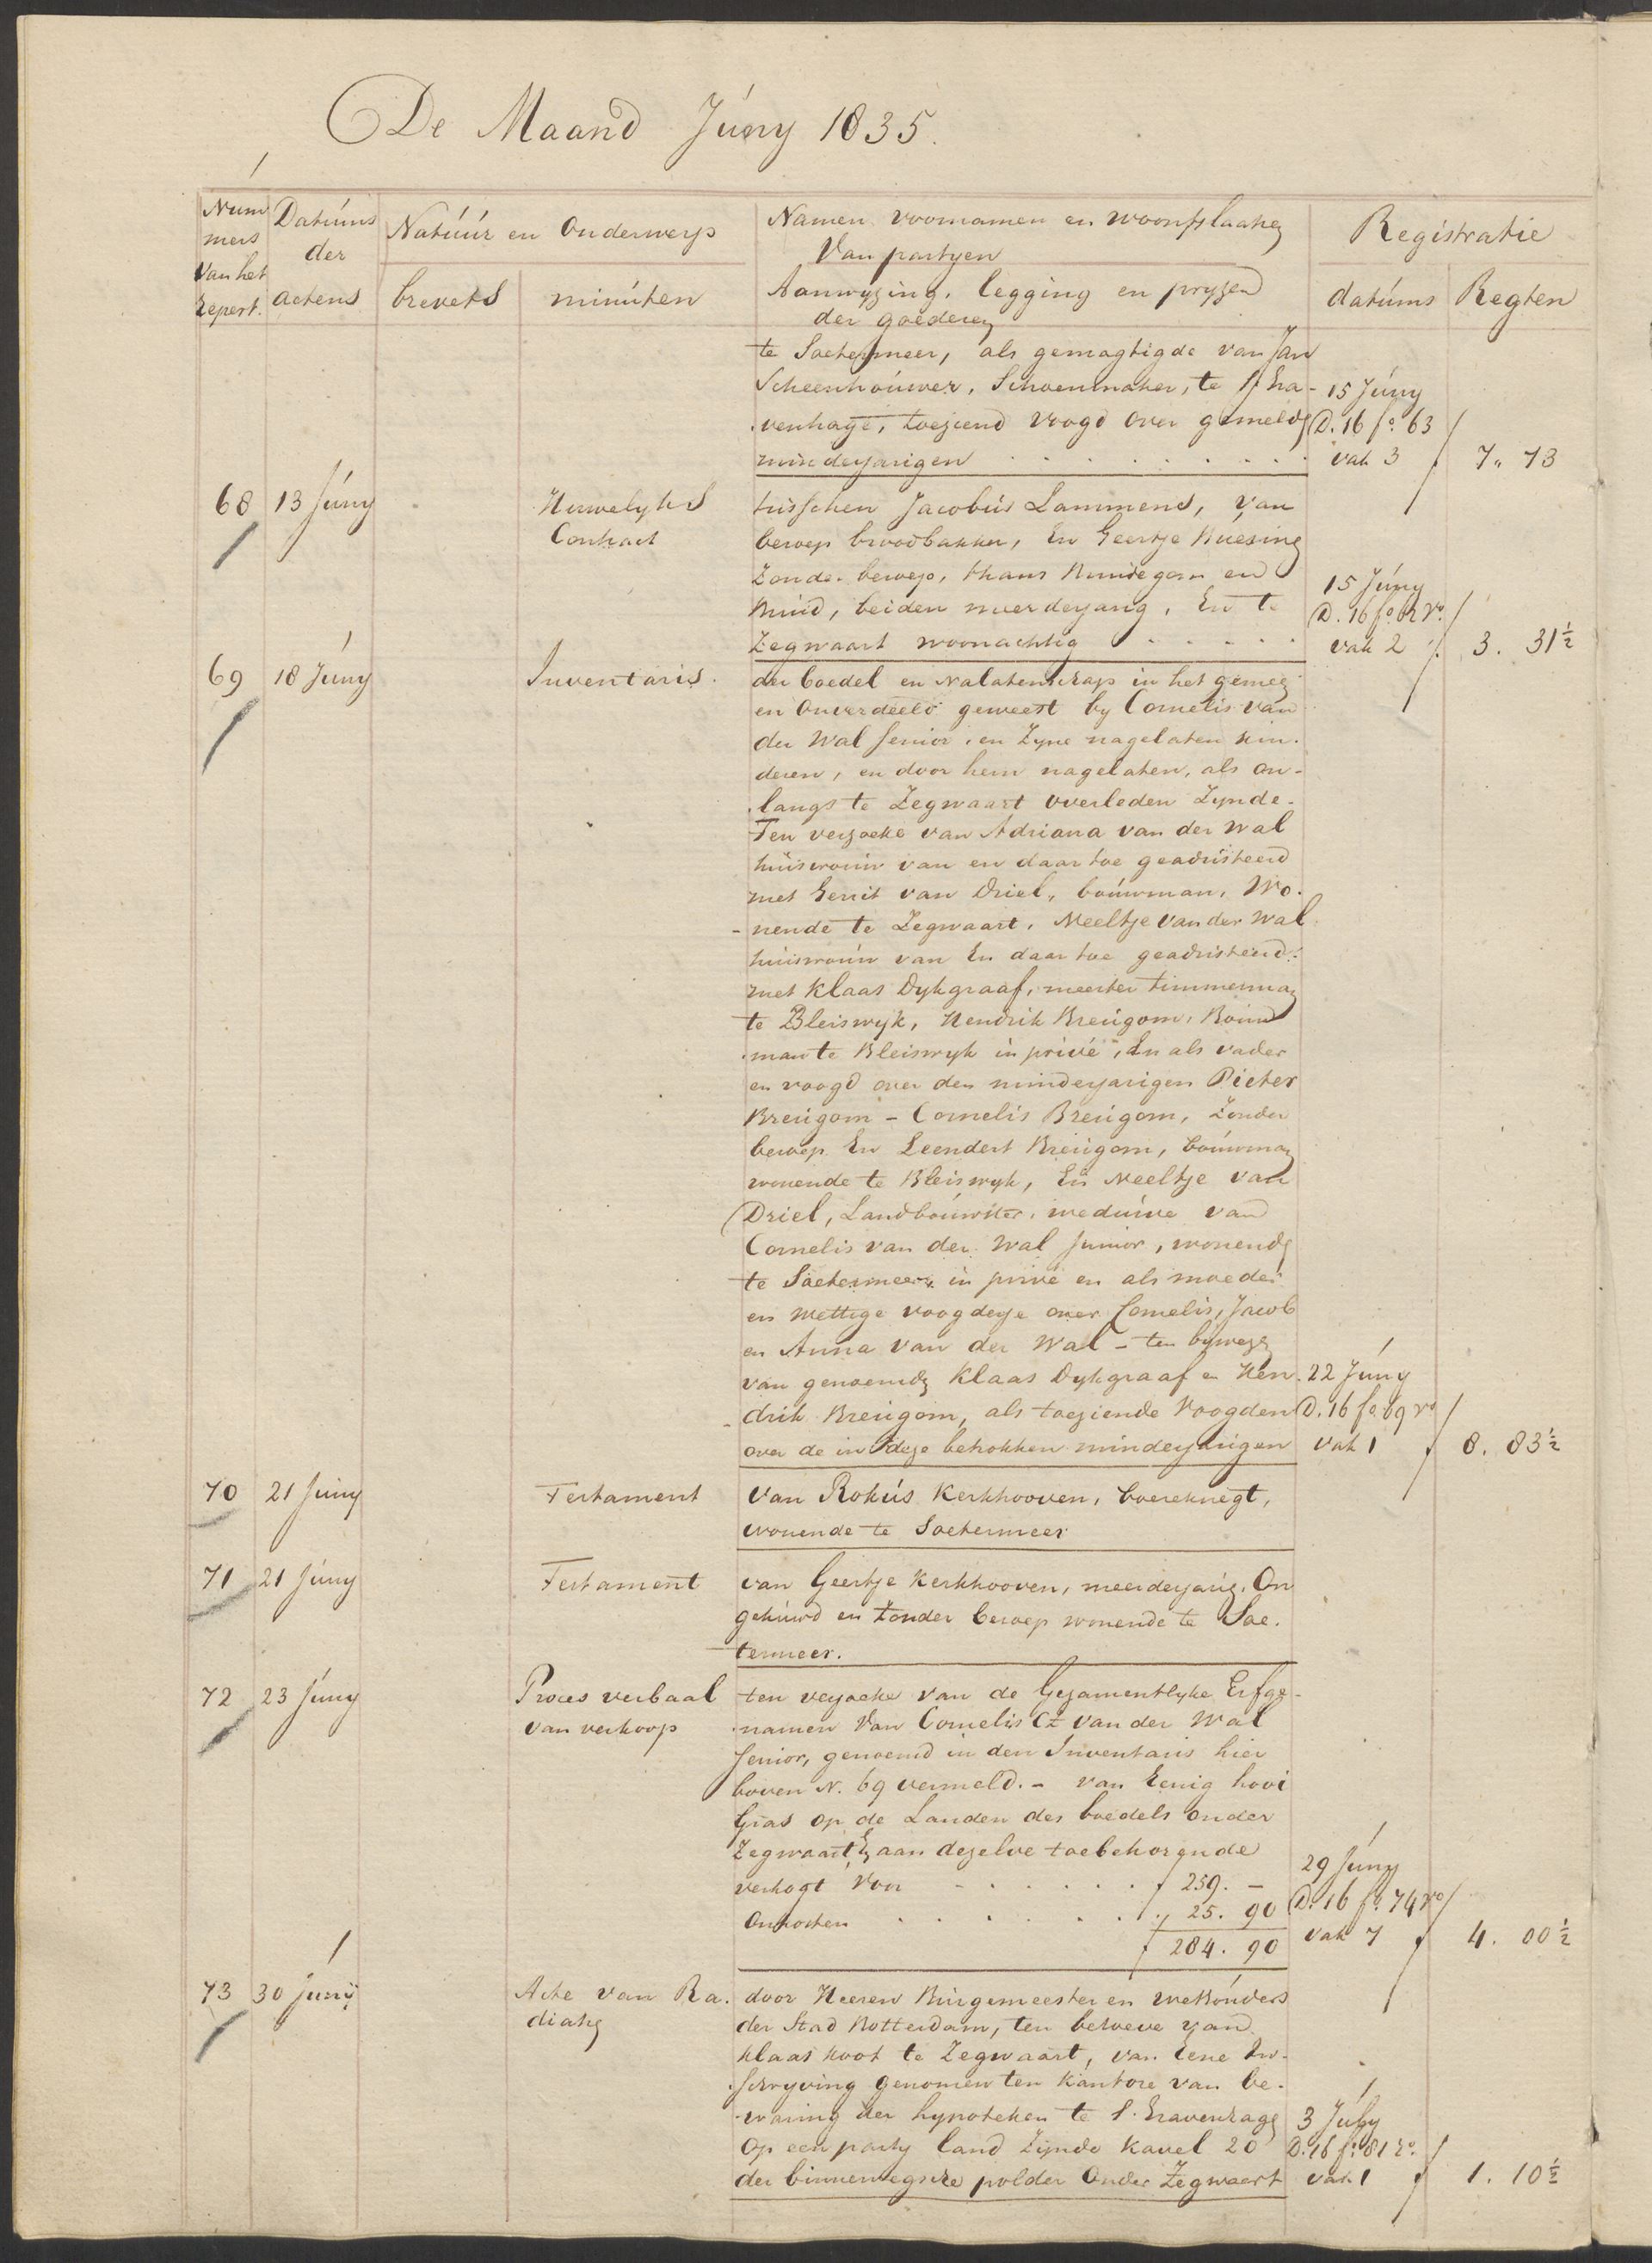 De Maand Júny 1835.
Num
mers
van het
Repert.
Datúms
der
actens
Natúúr en Onderwerp
brevets
minúten
Namen voornamen en woonplaatsen
Van partyen
Aanwyzing, legging en pryzen
der goederen
Registratie
datúms
Regten
te Soetermeer, als gemagtigde van Jan
Scheenhouwer, Schoenmaker, te s' Gra-
venhage, toeziend voogd over gemelde
minderjarigen . . . . . . . . .
15 Júny
D. 16 fo. 63
vak 3
7 " 73
68
13 Júny
Huwelyks
Contract
tusschen Jacobús Lammens, van
beroep broodbakker, En Geertje
Zonder beroep, thans Bruidegom en
Bruid, beiden meerderjarig, En te
Zegwaart woonachtig . . . . .
15 Júny
D. 16 fo. 62 vo.
vak 2
3. 31½
69
18 Júny
Inventaris.
der boedel en Nalatenschap in het gemeen
en Onverdeeld geweest by Cornelis van
der Wal Senior, en Zyne nagelaten kin-
deren, en door hem nagelaten, als on-
langs te Zegwaart overleden Zynde.
Ten verzoeke van Adriana van der Wal
húisvrouw van en daar toe geadsisteerd
met Gerrit van Driel, bouwman, Wo-
nende te Zegwaart, Neeltje van der Wal
huisvrouw van En daar toe geadsisteerd
met Klaas Dykgraaf, meester timmerman
te Bleiswyk, Hendrik Breúgom, Bouw
man te Bleiswyk in privé, En als vader
en voogd over den minderjarigen Pieter
Breúgom - Cornelis Breúgom, Zonder
beroep En Leendert Breúgom, bouwman
wonende te Bleiswyk, En Neeltje van
Driel, Landbouwster, weduwe van
Cornelis van der Wal Junior, wonende
te Soetermeer, in privé en als moeder
en Wettige voogdesse over Cornelis, Jacob
en Anna van der Wal - ten bywezen
van genoemde Klaas Dykgraaf en Hen-
drik Breúgom, als toeziende Voogden
over de in deze betrokken minderjarigen
22 Júny
D. 16 fo 69 vo
vak 1
8. 83½
70
21 Júny
Testament
Van Rokús Kerkhooven, boereknegt,
wonende te Soetermeer
71
21 Júny
Testament
van Geertje Kerkhooven, meerderjarig, On
gehúwd en Zonder beroep wonende te Soe-
termeer.
72
23 Júny
Proces verbaal
van verkoop
ten verzoeke van de Gezamentlyke Erfge-
namen Van Cornelis Cz van der Wal
Senior, genoemd in den Inventaris hier
boven N. 69 vermeld. - van Eenig hooi
Gras op de Landen des boedels onder
Zegwaart En aan dezelve toebehorende
verkogt Voor . . . . . . f 259. -
Onkosten . . . . . . „ 25. 90
f 284. 90
29 Júny
D. 16 fo. 74 vo
vak 7
4. 00½
73
30 Júny
Acte van Ra-
diatie
door Heeren Burgemeester en wethouders
der Stad Rotterdam, ten behoeve van
Klaas Koot te Zegwaart, van Eene In-
schryving genomen ten Kantore van be-
waring der hypoteken te s. Gravenhage
Op een party land Zynde Kavel 20
der binnenwegsche polder Onder Zegwaart
3 July
D. 16 fo. 81 ro.
vak 1
1. 10½